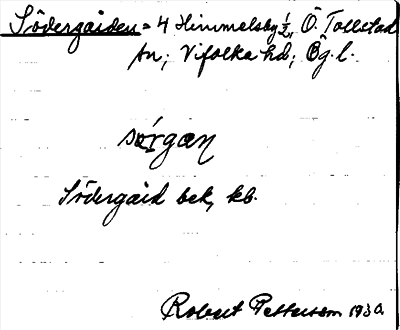 Södergården = 4 Himmelsby ½, Ö. Tollstad
sn; Vifolka hd; Ög. l.
sørgan
Södergård bek, kb.
Robert Pettersson 1930